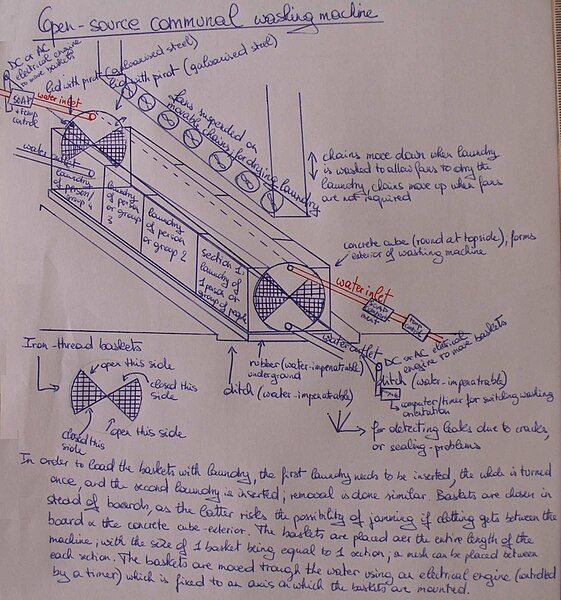 Open-source communal washing machine
DC or AC
electrical engine
to move baskets
lid with pivot (galvanised steel)
lid with pivot (galvanised steel)
SOAP
+ temp
control
water inlet
water outlet
fans suspended on
movable chains for drying laundry
chains move down when laundry
is washed to allow fans to dry the
laundry, chains move up when fans
are not required
laundry
of person/
group 4
laundry
of person
or group
3
laundry
of person
or group 2
section 1:
laundry of
1 person or
group of people
concrete cube (round at topside), forms
exterior of washing machine
water inlet
water outlet
DC or AC electrical
engine to move baskets
rubber (water-impenatrable)
underground
ditch (water-impenatrable)
ditch (water-impenatrable)
computer/timer for switching washing
orientation
for detecting leaks due to cracks,
or sealing-problems
Iron-thread baskets
open this side
closed this
side
closed this
side
open this side
In order to load the baskets with laundry, the first laundry needs to be inserted, the whole is turned
once, and the second laundry is inserted; removal is done similar. Baskets are chosen in
stead of boards, as the latter risks the possibility of jamming if clothing gets between the
board & the concrete cube-exterior. The baskets are placed over the entire length of the
machine; with the size of 1 basket being equal to 1 section; a mesh can be placed between
each section. The baskets are moved trough the water using an electrical engine (controlled
by a timer) which is fixed to an axis on which the baskets are mounted.